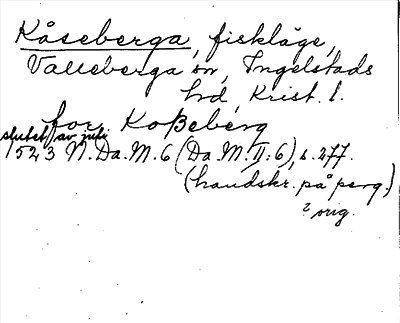 Kåseberga, fiskläge,
Valleberga sn, Ingelstads
hd, Krist. l.
for Koßeberg
slutet av juli
1523 N. Da. M. 6 (Da. M. II: 6), s. 277.
(handskr. på perg.)
? orig.